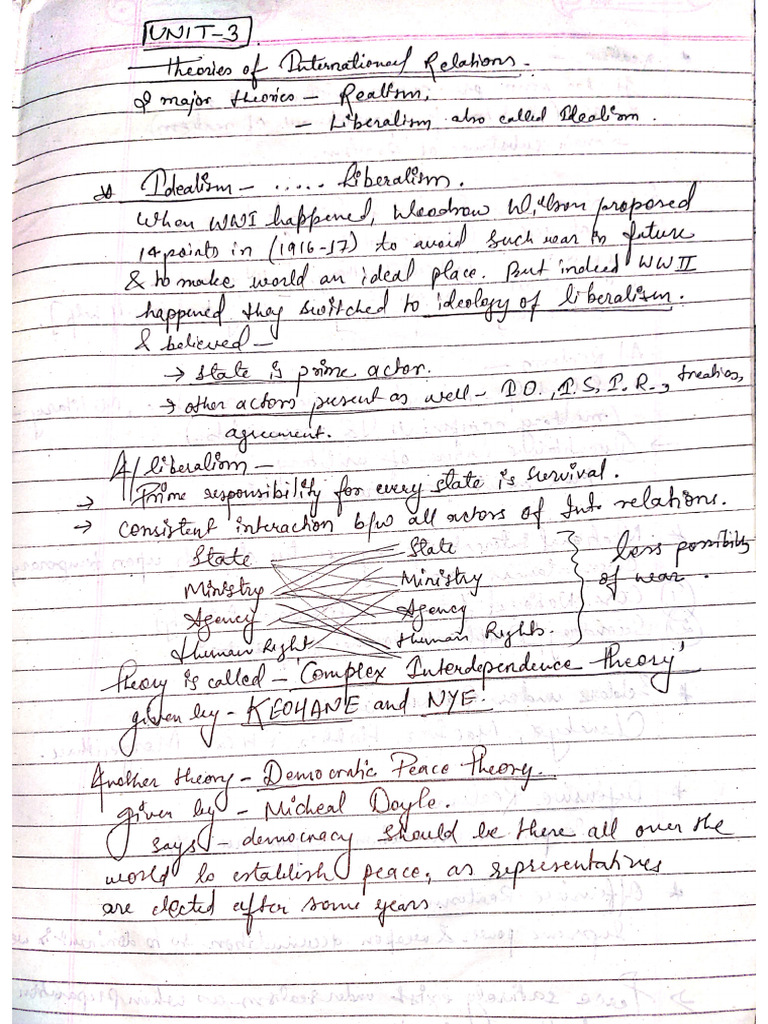 UNIT-3
Theories of International Relations.
2 major theories - Realism,
- Liberalism also called Idealism.
Idealism - ..... Liberalism.
When WWI happened, Woodrow Wilson proposed
14 points in (1916-17) to avoid such war in future
& to make world an ideal place. But indeed WWII
happened they switched to ideology of liberalism.
& believed -
→ State is prime actor.
→ other actors present as well - I O., I.S, I.R., treaties,
agreement.
A/ liberalism -
→ Prime responsibility for every state is survival.
→ consistent interaction b/w all actors of Int. relations.
State State
Ministry Ministry
Agency Agency
Human Right Human Rights.
less possibility
of war.
theory is called - 'Complex Interdependence theory'
given by - KEOHANE and NYE.
Another theory - Democratic Peace Theory.
given by - Micheal Doyle.
says - democracy should be there all over the
world to establish peace, as representatives
are elected after some years.